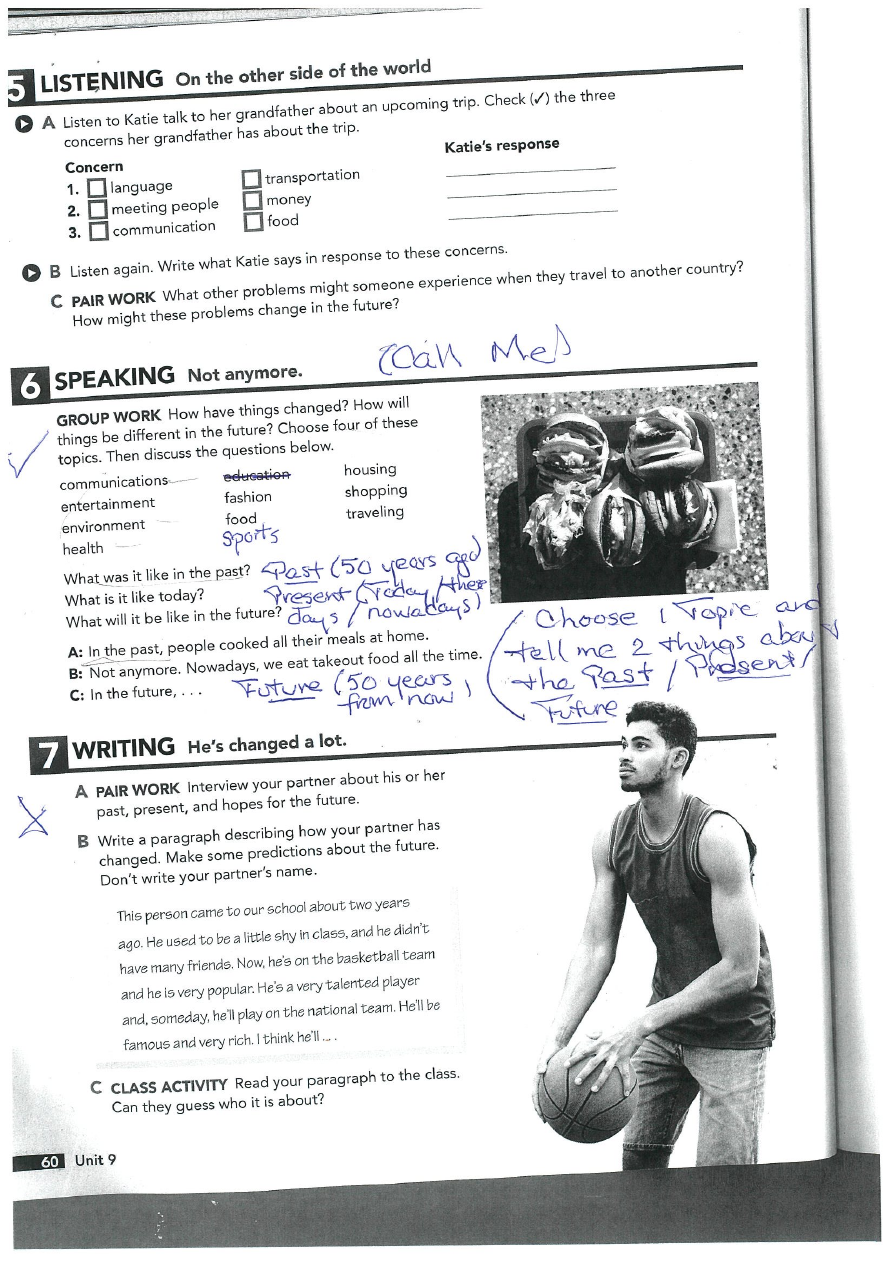 5 LISTENING On the other side of the world
A Listen to Katie talk to her grandfather about an upcoming trip. Check (✓) the three
concerns her grandfather has about the trip.
Concern
Katie's response
1. language
transportation
2. meeting people
money
3. communication
food
B Listen again. Write what Katie says in response to these concerns.
C PAIR WORK What other problems might someone experience when they travel to another country?
How might these problems change in the future?
(Call Me)
6 SPEAKING Not anymore.
GROUP WORK How have things changed? How will
things be different in the future? Choose four of these
topics. Then discuss the questions below.
communications
education
housing
entertainment
fashion
shopping
environment
food
traveling
health
Sports
What was it like in the past? Past (50 years ago)
What is it like today? Present (Today / these
What will it be like in the future? days / nowadays)
A: In the past, people cooked all their meals at home.
B: Not anymore. Nowadays, we eat takeout food all the time.
C: In the future, . . . Future (50 years
from now)
Choose 1 Topic and
tell me 2 things about
the Past / Present /
Future
7 WRITING He's changed a lot.
A PAIR WORK Interview your partner about his or her
past, present, and hopes for the future.
B Write a paragraph describing how your partner has
changed. Make some predictions about the future.
Don't write your partner's name.
This person came to our school about two years
ago. He used to be a little shy in class, and he didn't
have many friends. Now, he's on the basketball team
and he is very popular. He's a very talented player
and, someday, he'll play on the national team. He'll be
famous and very rich. I think he'll ... .
C CLASS ACTIVITY Read your paragraph to the class.
Can they guess who it is about?
60 Unit 9